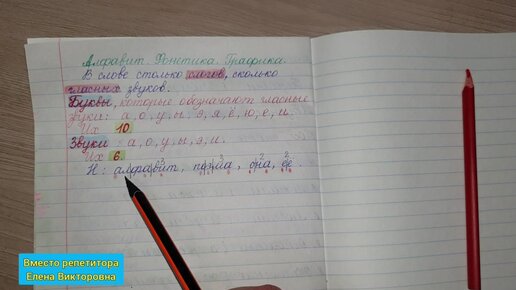 Алфавит. Фонетика. Графика.
В слове столько слогов, сколько
гласных звуков.
Буквы, которые обозначают гласные
звуки: а, о, у, ы, э, я, ё, ю, е, и.
Их 10.
Звуки а, о, у, ы, э, и.
Их 6.
Н: алфавит, поэма, она, её.
Вместо репетитора
Елена Викторовна